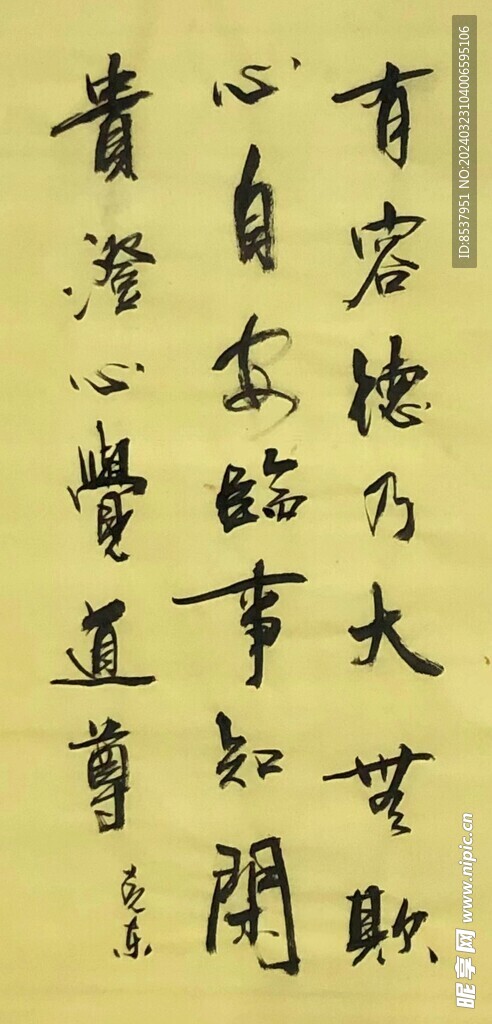 有容德乃大無欺
心自安臨事知閑
貴澄心覺道尊
克東
ID:8537951 NO:20240323104006595106
昵享网 www.nipic.cn